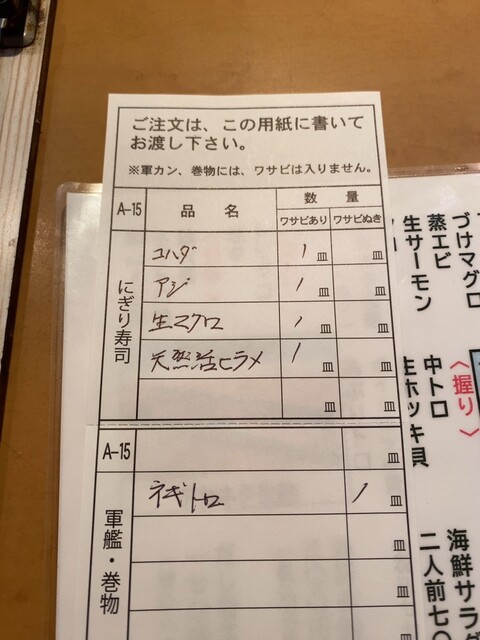 ご注文は、この用紙に書いて
お渡し下さい。
※軍カン、巻物には、ワサビは入りません。
A-15 品名 数量
ワサビあり ワサビぬき
にぎり寿司
コハダ 1 皿 皿
アジ 1 皿 皿
生マグロ 1 皿 皿
天然活ヒラメ 1 皿 皿
皿 皿
A-15 皿
軍艦・巻物
ネギトロ 1 皿
皿
皿
皿
づけマグロ
蒸エビ
生サーモン
〈握り〉
中トロ
生ホッキ貝
海鮮サラダ
二人前七〇